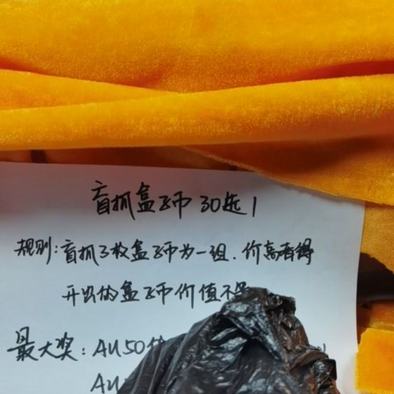 盲抓盒子币 30选1
规则:盲抓3枚盒子币为一组.价高者得
开出的盒子币价值不
最大奖:AU50
AU